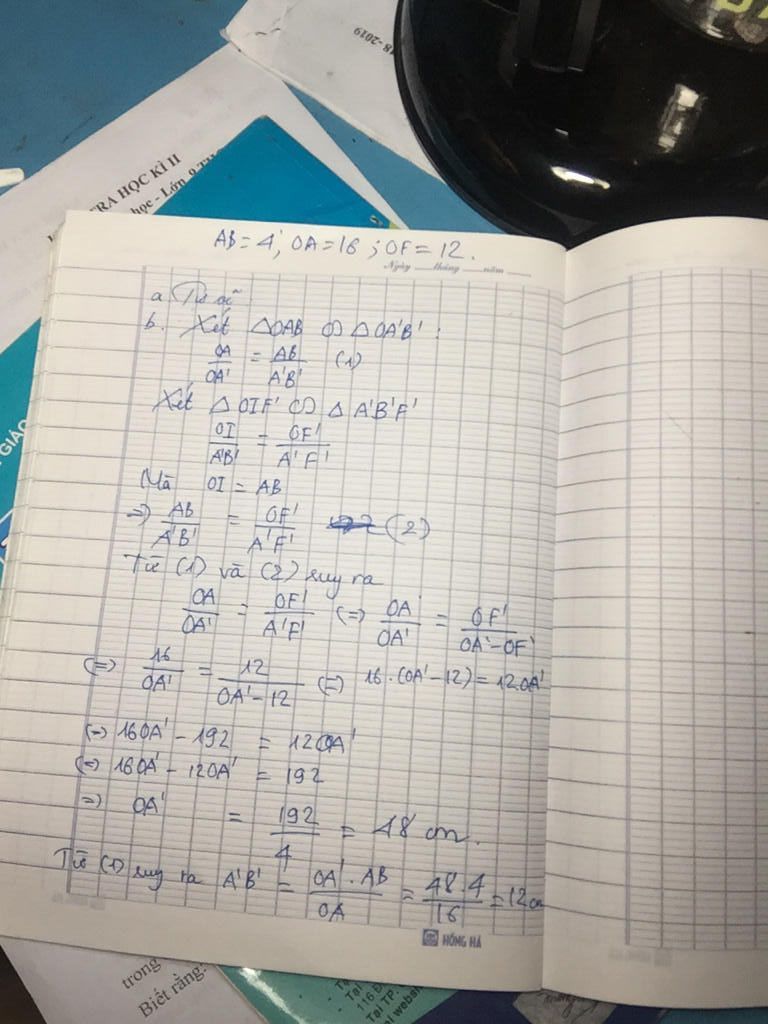 18-2019
RA HỌC KÌ II
học - Lớp 9 TH
GIÁO
AB = 4, OA = 16 ; OF = 12.
Ngày tháng năm
a. Tự vẽ
b. Xét △OAB ∽ △OA'B' :
OA/OA' = AB/A'B' (1)
Xét △OIF' ∽ △A'B'F'
OI/A'B' = OF'/A'F'
Mà OI = AB
=> AB/A'B' = OF'/A'F' (2)
Từ (1) và (2) suy ra
OA/OA' = OF'/A'F' (=) OA/OA' = OF'/OA'-OF'
(=) 16/OA' = 12/OA'-12 (=) 16.(OA'-12) = 12.OA'
(=) 16OA' - 192 = 12OA'
(=) 16OA' - 12OA' = 192
=> OA' = 192/4 = 48 cm.
Từ (1) suy ra A'B' = OA'.AB/OA = 48.4/16 = 12cm
HỒNG HÀ
trong
Biết rằng:
- Tại
Tại TP.
116 Đ
websit